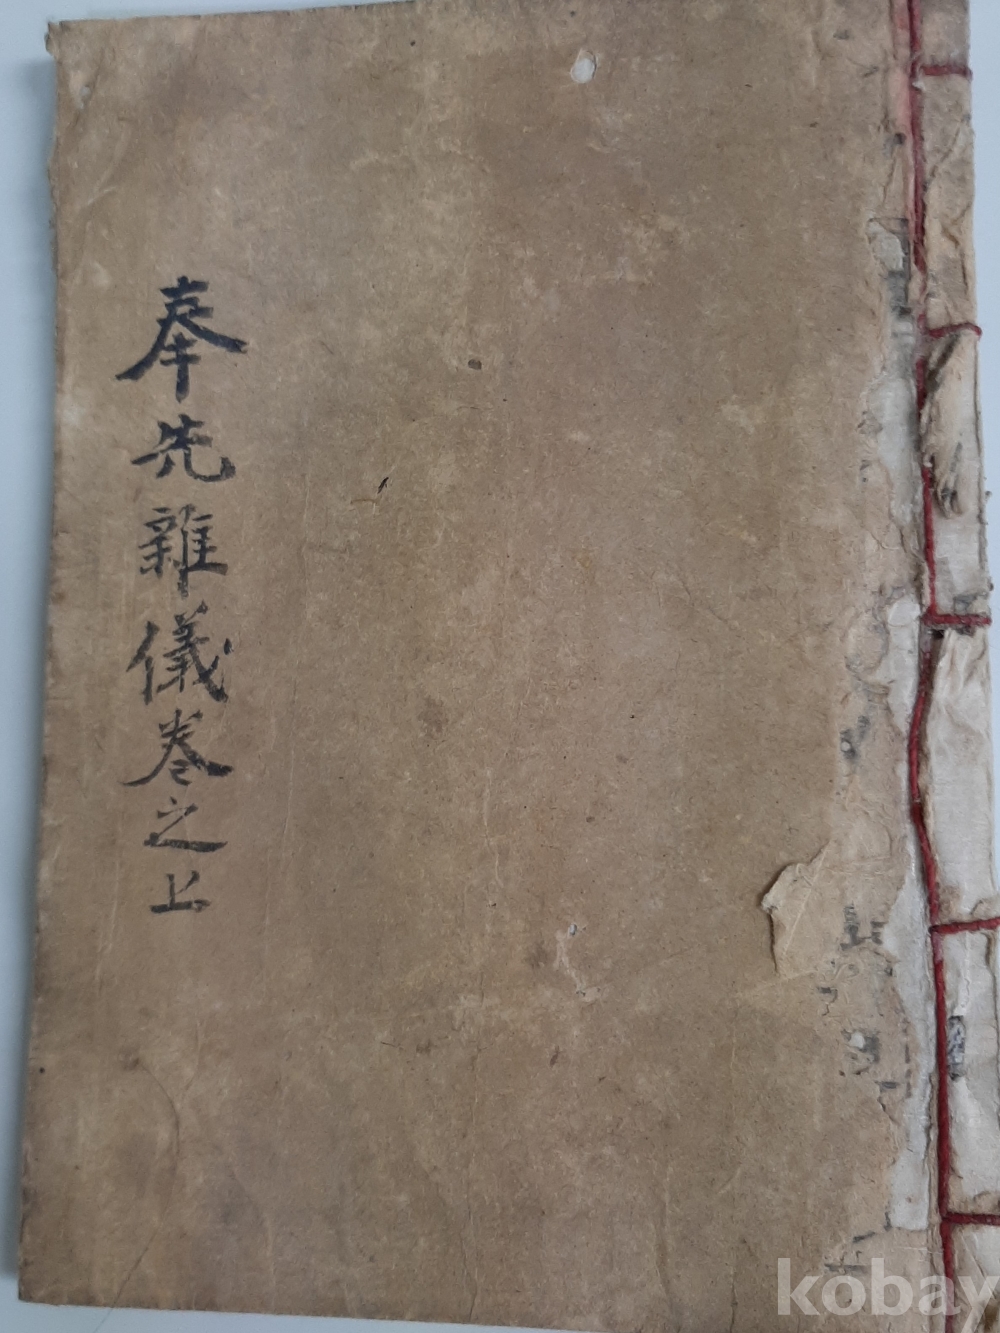 奉先雜儀卷之上
kobay